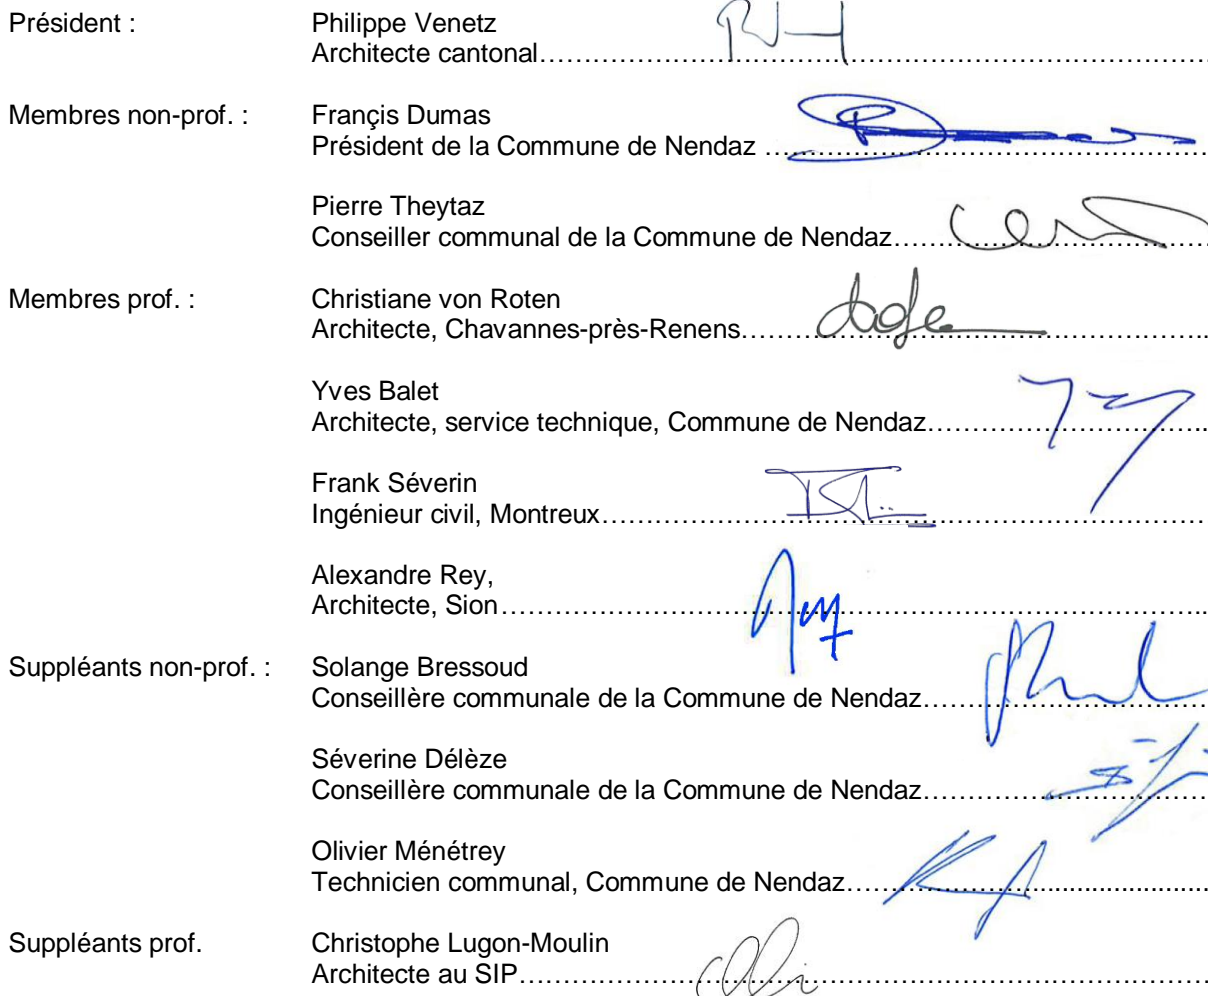 Président : Philippe Venetz
Architecte cantonal……………………………………………………………………
Membres non-prof. : Françis Dumas
Président de la Commune de Nendaz ……………………………………………
Pierre Theytaz
Conseiller communal de la Commune de Nendaz………………………………
Membres prof. : Christiane von Roten
Architecte, Chavannes-près-Renens………………………………………………..
Yves Balet
Architecte, service technique, Commune de Nendaz……………………………..
Frank Séverin
Ingénieur civil, Montreux……………………………………………………………
Alexandre Rey,
Architecte, Sion………………………………………………………………………..
Suppléants non-prof. : Solange Bressoud
Conseillère communale de la Commune de Nendaz……………………………
Séverine Délèze
Conseillère communale de la Commune de Nendaz……………………………
Olivier Ménétrey
Technicien communal, Commune de Nendaz……………………........................
Suppléants prof. Christophe Lugon-Moulin
Architecte au SIP………………………………………………………………………